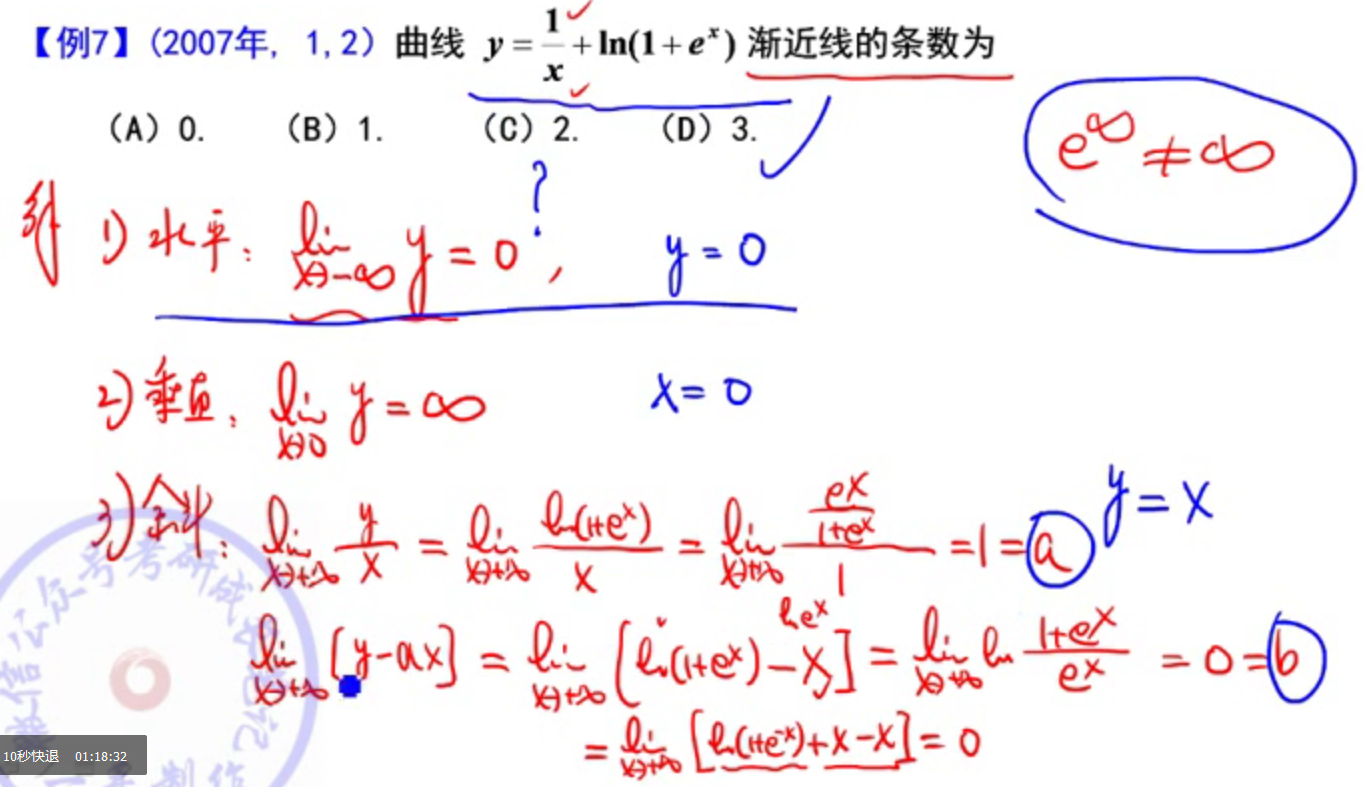 【例7】(2007年, 1,2) 曲线 y = 1/x + ln(1+eˣ) 渐近线的条数为
(A) 0. (B) 1. (C) 2. (D) 3.
e^∞ ≠ ∞
?
1) 水平: lim x→-∞ y = 0, y = 0
2) 垂直: lim x→0 y = ∞ x = 0
3) 斜: lim x→+∞ y/x = lim x→+∞ ln(1+eˣ)/x = lim x→+∞ (eˣ/(1+eˣ))/1 = 1 = a y = x
ln eˣ
lim x→+∞ [y-ax] = lim x→+∞ [ln(1+eˣ)-x] = lim x→+∞ ln (1+eˣ)/eˣ = 0 = b
= lim x→+∞ [ln(1+e⁻ˣ)+x-x] = 0
10秒快退 01:18:32